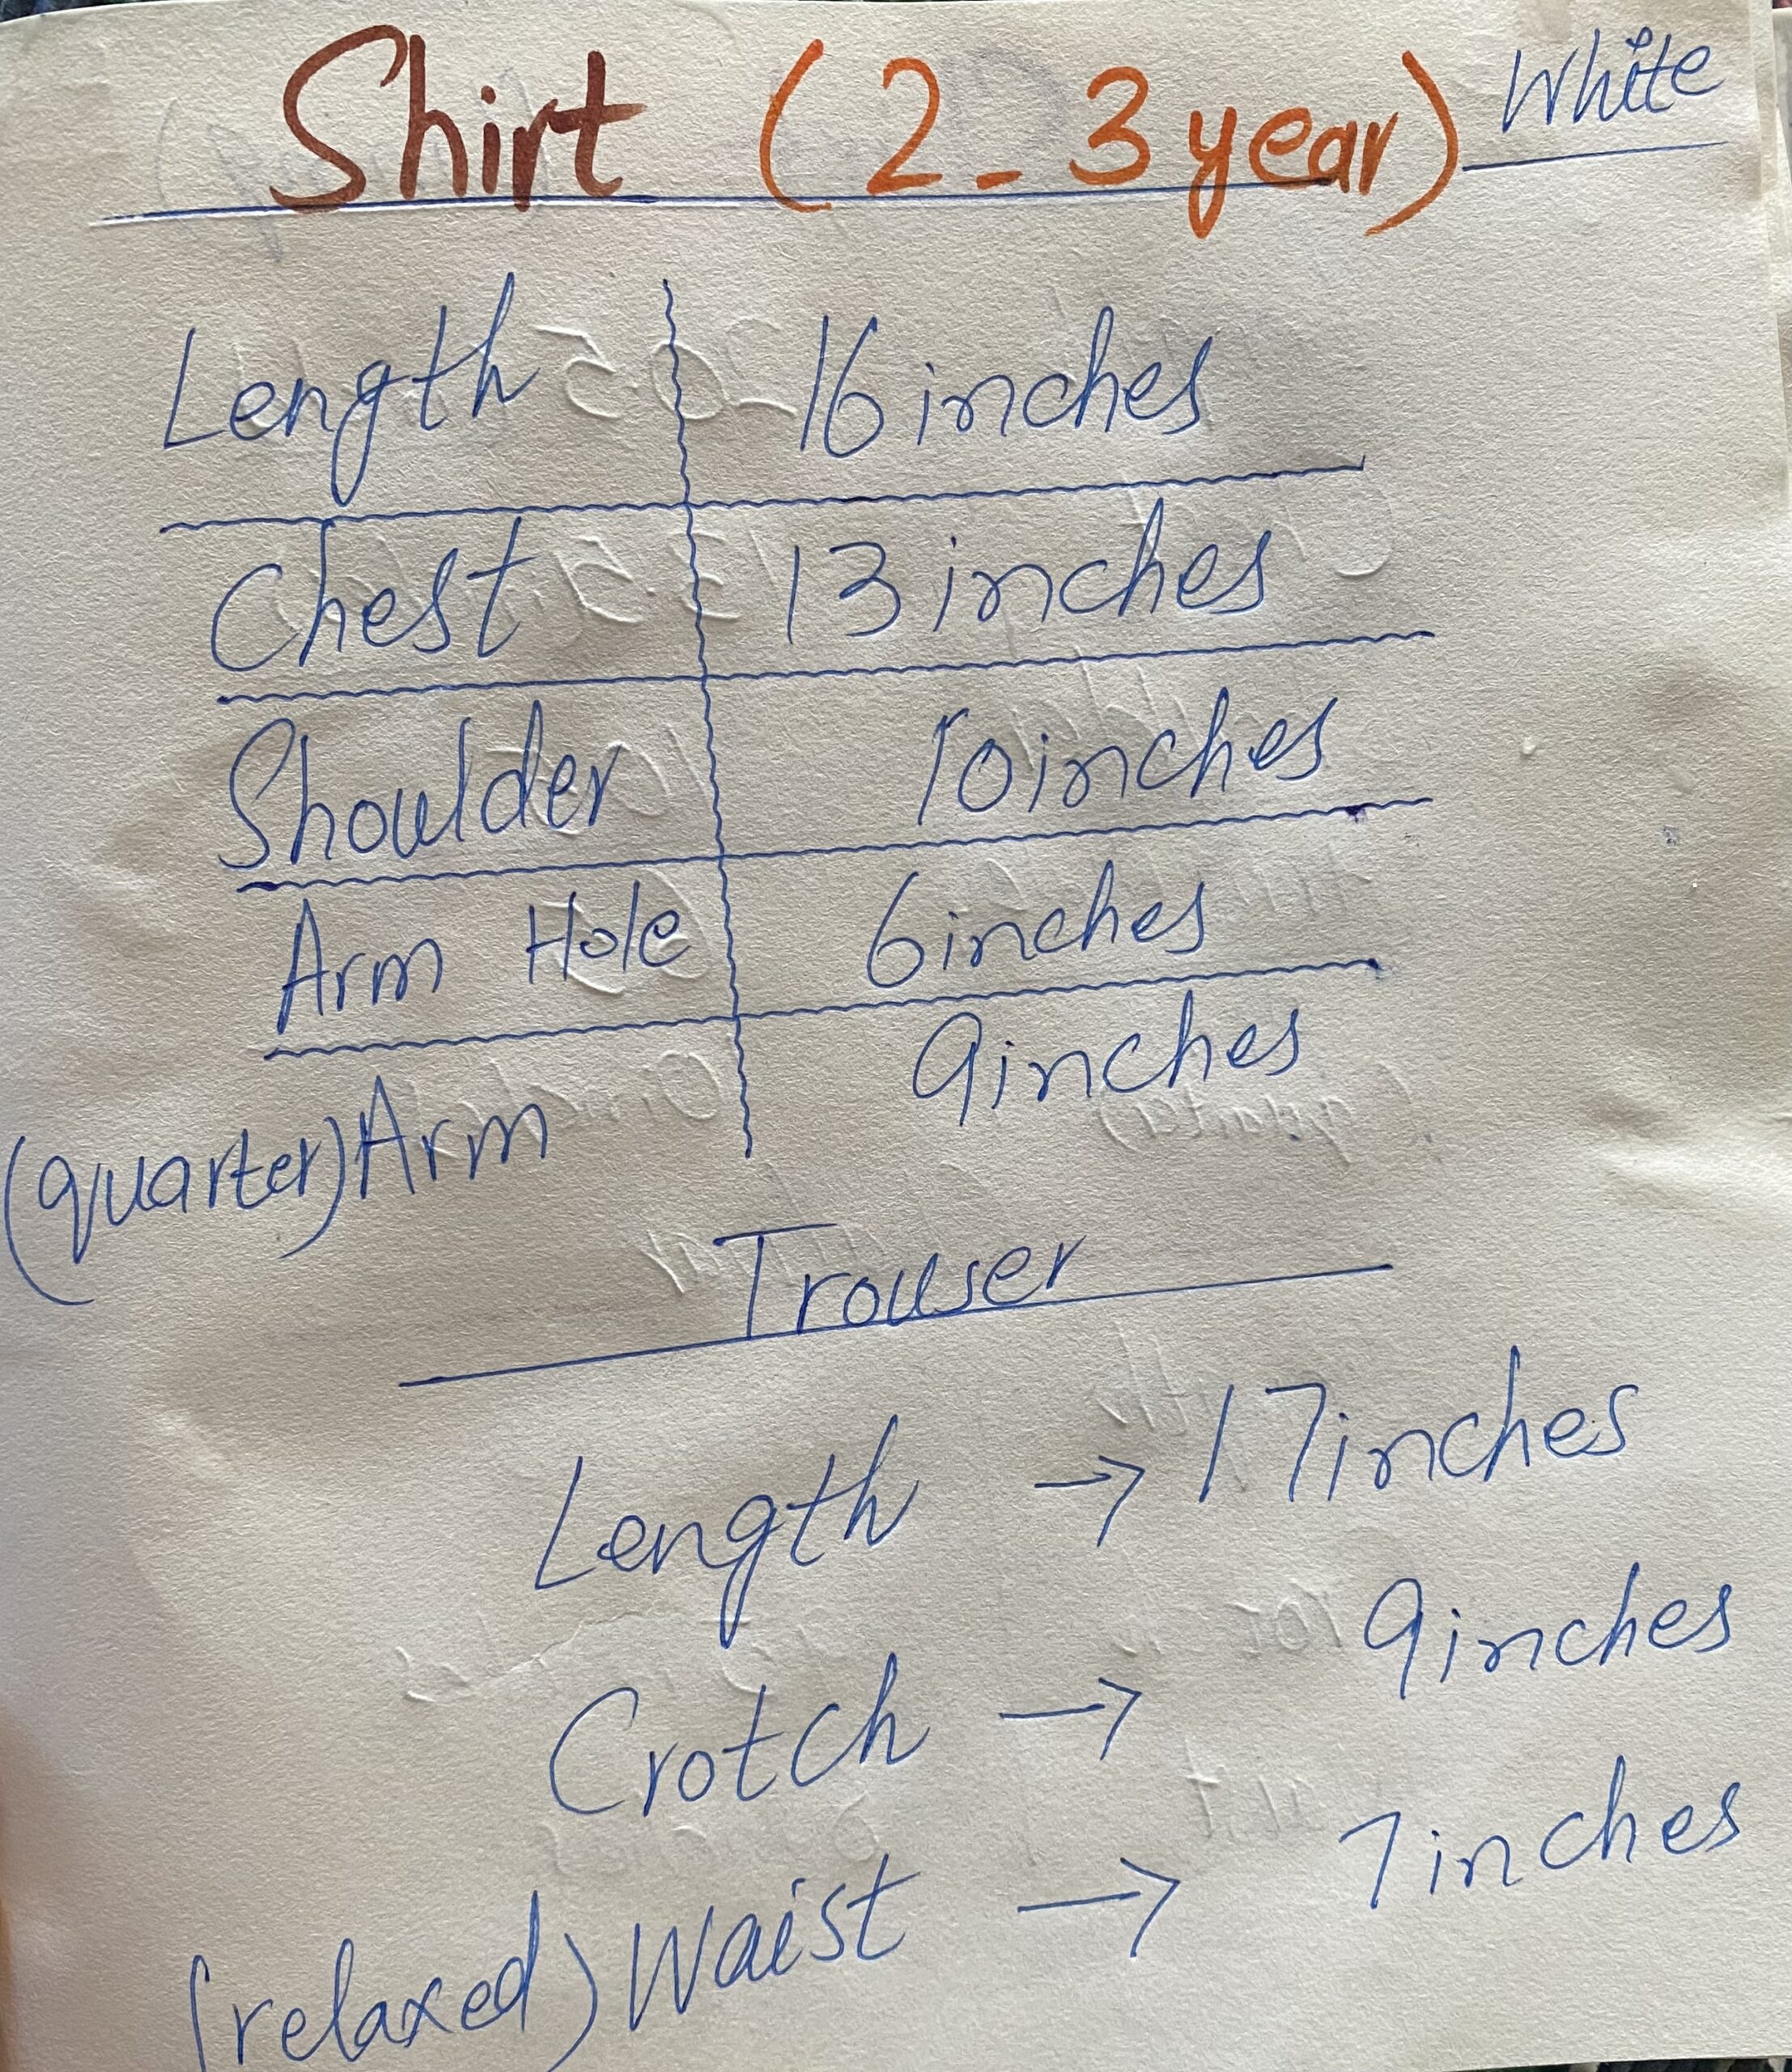 Shirt (2-3 year) White
Length 16 inches
Chest 13 inches
Shoulder 10 inches
Arm Hole 6 inches
(quarter) Arm 9 inches
Trouser
Length → 17 inches
Crotch → 9 inches
(relaxed) Waist → 7 inches